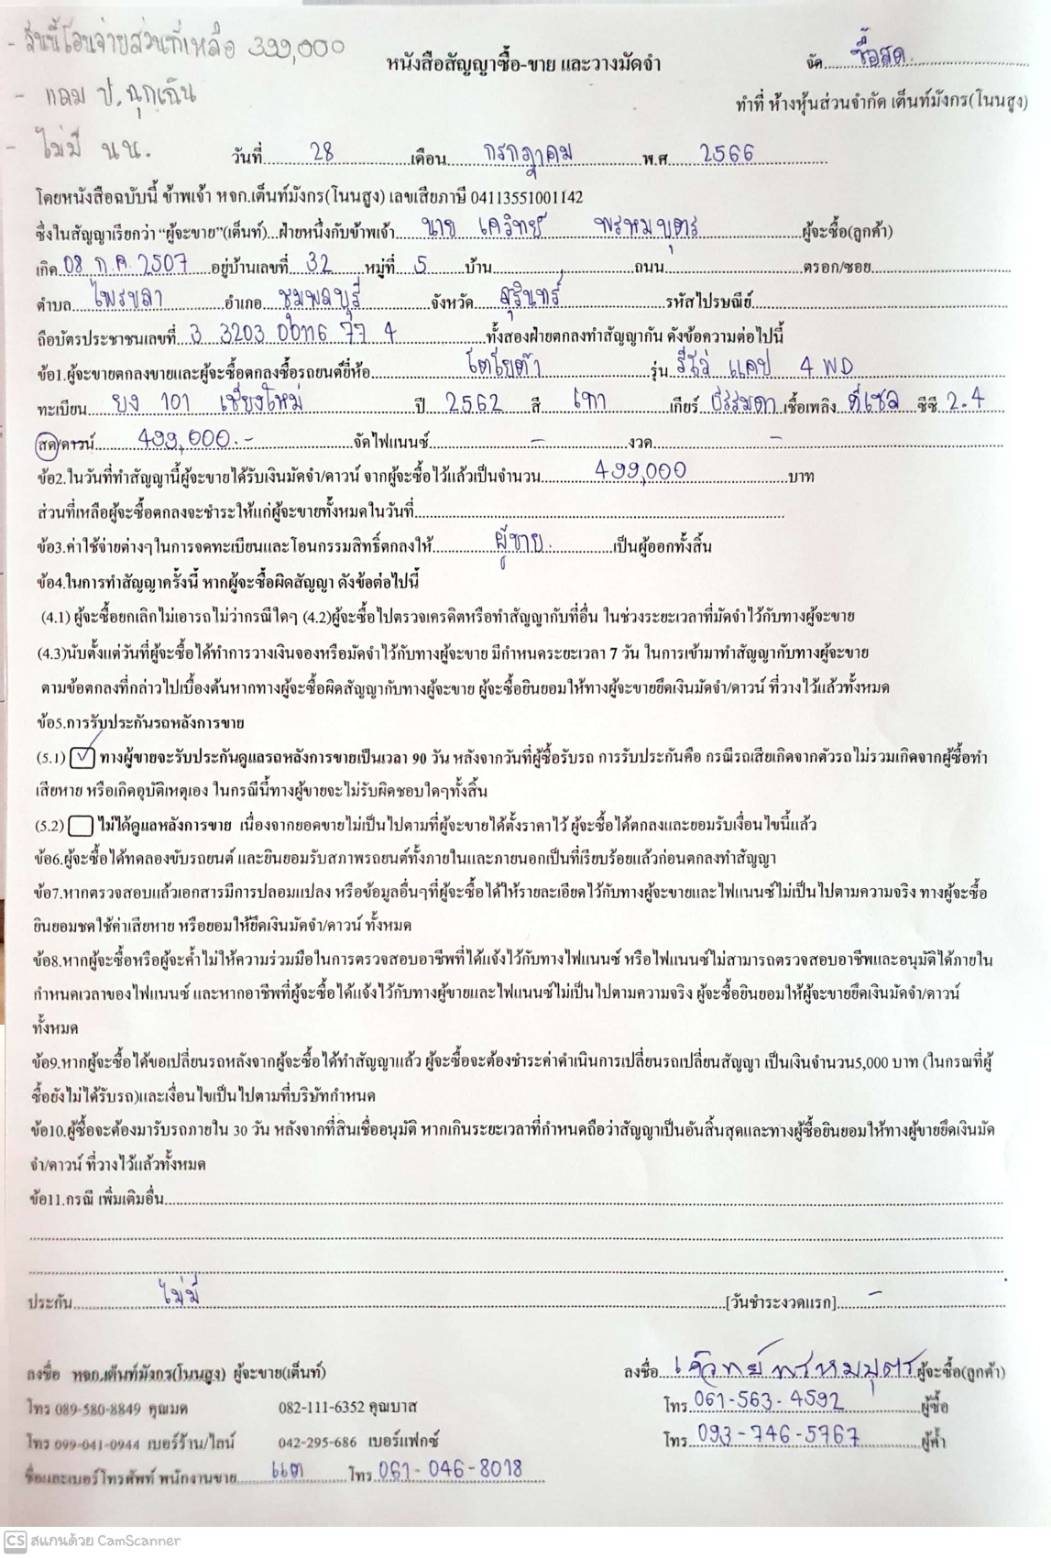 - วันนี้โอนจ่ายส่วนที่เหลือ 399,000
- แถม ป.ฉุกเฉิน
- ไม่มี นน.
หนังสือสัญญาซื้อ-ขาย และวางมัดจำ
จัด ซื้อสด
ทำที่ ห้างหุ้นส่วนจำกัด เต็นท์มังกร(โนนสูง)
วันที่ 28 เดือน กรกฎาคม พ.ศ. 2566
โดยหนังสือฉบับนี้ ข้าพเจ้า หจก.เต็นท์มังกร(โนนสูง) เลขเสียภาษี 04113551001142
ซึ่งในสัญญาเรียกว่า “ผู้จะขาย”(เต็นท์)...ฝ่ายหนึ่งกับข้าพเจ้า นาย เควิทย์ พรหมบุตร ผู้จะซื้อ(ลูกค้า)
เกิด 08 ก.ค. 2507 อยู่บ้านเลขที่ 32 หมู่ที่ 5 บ้าน ถนน ตรอก/ซอย
ตำบล ไพรขลา อำเภอ ชุมพลบุรี จังหวัด สุรินทร์ รหัสไปรษณีย์
ถือบัตรประชาชนเลขที่ 3 3203 00116 77 4 ทั้งสองฝ่ายตกลงทำสัญญากัน ดังข้อความต่อไปนี้
ข้อ1.ผู้จะขายตกลงขายและผู้จะซื้อตกลงซื้อรถยนต์ยี่ห้อ โตโยต้า รุ่น รีโว่ แคป 4 WD
ทะเบียน ยง 101 เชียงใหม่ ปี 2562 สี เทา เกียร์ ธรรมดา เชื้อเพลิง ดีเซล ซีซี 2.4
สด/ดาวน์ 499,000.- จัดไฟแนนซ์ - งวด -
ข้อ2.ในวันที่ทำสัญญานี้ผู้จะขายได้รับเงินมัดจำ/ดาวน์ จากผู้จะซื้อไว้แล้วเป็นจำนวน 499,000 บาท
ส่วนที่เหลือผู้จะซื้อตกลงจะชำระให้แก่ผู้จะขายทั้งหมดในวันที่
ข้อ3.ค่าใช้จ่ายต่างๆในการจดทะเบียนและโอนกรรมสิทธิ์ตกลงให้ ผู้ขาย เป็นผู้ออกทั้งสิ้น
ข้อ4.ในการทำสัญญาครั้งนี้ หากผู้จะซื้อผิดสัญญา ดังข้อต่อไปนี้
(4.1) ผู้จะซื้อยกเลิกไม่เอารถไม่ว่ากรณีใดๆ (4.2)ผู้จะซื้อไปตรวจเครดิตหรือทำสัญญากับที่อื่น ในช่วงระยะเวลาที่มัดจำไว้กับทางผู้จะขาย
(4.3)นับตั้งแต่วันที่ผู้จะซื้อได้ทำการวางเงินจองหรือมัดจำไว้กับทางผู้จะขาย มีกำหนดระยะเวลา 7 วัน ในการเข้ามาทำสัญญากับทางผู้จะขาย
ตามข้อตกลงที่กล่าวไปเบื้องต้นหากทางผู้จะซื้อผิดสัญญากับทางผู้จะขาย ผู้จะซื้อยินยอมให้ทางผู้จะขายยึดเงินมัดจำ/ดาวน์ ที่วางไว้แล้วทั้งหมด
ข้อ5.การรับประกันรถหลังการขาย
(5.1) ✓ ทางผู้ขายจะรับประกันดูแลรถหลังการขายเป็นเวลา 90 วัน หลังจากวันที่ผู้ซื้อรับรถ การรับประกันคือ กรณีรถเสียเกิดจากตัวรถ ไม่รวมเกิดจากผู้ซื้อทำ
เสียหาย หรือเกิดอุบัติเหตุเอง ในกรณีนี้ทางผู้ขายจะไม่รับผิดชอบใดๆทั้งสิ้น
(5.2) ไม่ได้ดูแลหลังการขาย เนื่องจากยอดขายไม่เป็นไปตามที่ผู้จะขายได้ตั้งราคาไว้ ผู้จะซื้อได้ตกลงและยอมรับเงื่อนไขนี้แล้ว
ข้อ6.ผู้จะซื้อได้ทดลองขับรถยนต์ และยินยอมรับสภาพรถยนต์ทั้งภายในและภายนอกเป็นที่เรียบร้อยแล้วก่อนตกลงทำสัญญา
ข้อ7.หากตรวจสอบแล้วเอกสารมีการปลอมแปลง หรือข้อมูลอื่นๆที่ผู้จะซื้อได้ให้รายละเอียดไว้กับทางผู้จะขายและไฟแนนซ์ไม่เป็นไปตามความจริง ทางผู้จะซื้อ
ยินยอมชดใช้ค่าเสียหาย หรือยอมให้ยึดเงินมัดจำ/ดาวน์ ทั้งหมด
ข้อ8.หากผู้จะซื้อหรือผู้จะค้ำไม่ให้ความร่วมมือในการตรวจสอบอาชีพที่ได้แจ้งไว้กับทางไฟแนนซ์ หรือไฟแนนซ์ไม่สามารถตรวจสอบอาชีพและอนุมัติได้ภายใน
กำหนดเวลาของไฟแนนซ์ และหากอาชีพที่ผู้จะซื้อได้แจ้งไว้กับทางผู้ขายและไฟแนนซ์ไม่เป็นไปตามความจริง ผู้จะซื้อยินยอมให้ผู้จะขายยึดเงินมัดจำ/ดาวน์
ทั้งหมด
ข้อ9.หากผู้จะซื้อได้ขอเปลี่ยนรถหลังจากผู้จะซื้อได้ทำสัญญาแล้ว ผู้จะซื้อจะต้องชำระค่าดำเนินการเปลี่ยนรถเปลี่ยนสัญญา เป็นเงินจำนวน5,000 บาท (ในกรณที่ผู้
ซื้อยังไม่ได้รับรถ)และเงื่อนไขเป็นไปตามที่บริษัทกำหนด
ข้อ10.ผู้ซื้อจะต้องมารับรถภายใน 30 วัน หลังจากที่สินเชื่ออนุมัติ หากเกินระยะเวลาที่กำหนดถือว่าสัญญาเป็นอันสิ้นสุดและทางผู้ซื้อยินยอมให้ทางผู้ขายยึดเงินมัด
จำ/ดาวน์ ที่วางไว้แล้วทั้งหมด
ข้อ11.กรณี เพิ่มเติมอื่น
ประกัน ไม่มี [วันชำระงวดแรก] -
ลงชื่อ หจก.เต็นท์มังกร(โนนสูง) ผู้จะขาย(เต็นท์) ลงชื่อ เควิทย์ พรหมบุตร ผู้จะซื้อ(ลูกค้า)
โทร 089-580-8849 คุณมด 082-111-6352 คุณบาส โทร. 061-563-4592 ผู้ซื้อ
โทร 099-041-0944 เบอร์ร้าน/ไลน์ 042-295-686 เบอร์แฟกซ์ โทร. 093-746-5967 ผู้ค้ำ
ชื่อและเบอร์โทรศัพท์ พนักงานขาย แต โทร. 061-046-8018
CS สแกนด้วย CamScanner